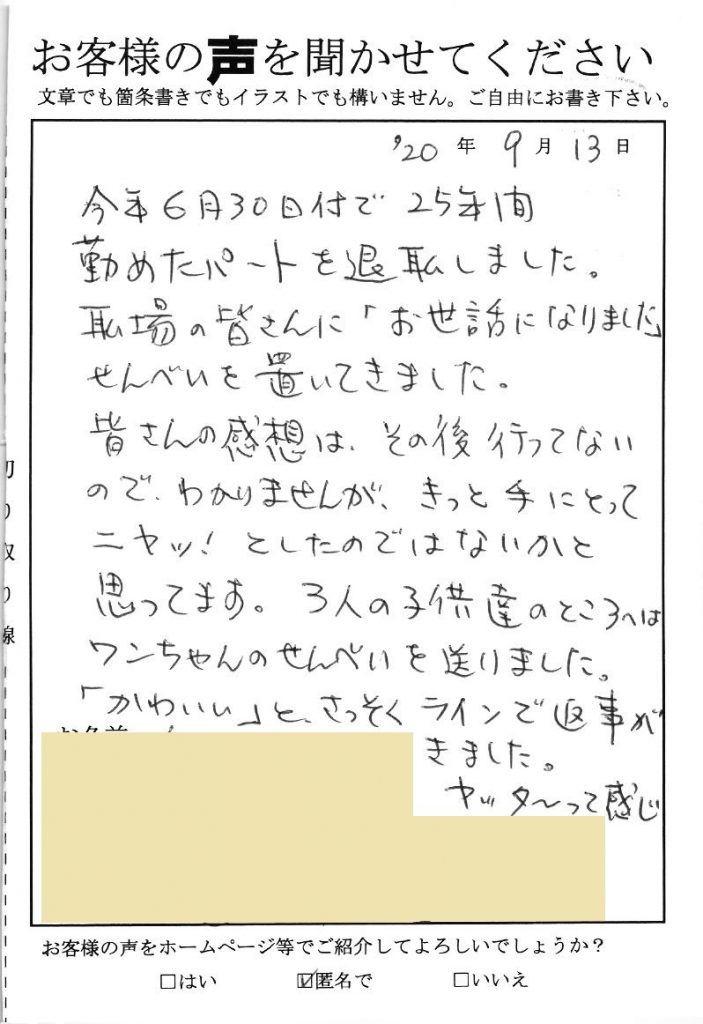 お客様の声を聞かせてください
文章でも箇条書きでもイラストでも構いません。ご自由にお書き下さい。
'20 年 9 月 13 日
今年6月30日付で 25年間
勤めたパートを退耺しました。
耺場の皆さんに「お世話になりました」
せんべいを置いてきました。
皆さんの感想は、その後行ってない
ので、わかりませんが、きっと手にとって
ニヤッ!としたのではないかと
思ってます。3人の子供達のところへは
ワンちゃんのせんべいを送りました。
「かわいい」と、さっそくラインで返事が
きました。
ヤッタ〜って感じ
切り取り線
お客様の声をホームページ等でご紹介してよろしいでしょうか?
□はい ☑匿名で □いいえ